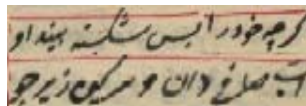 گرچه خود را بس شکسته بیند او
آب صافی دان و سرگین زیر جو